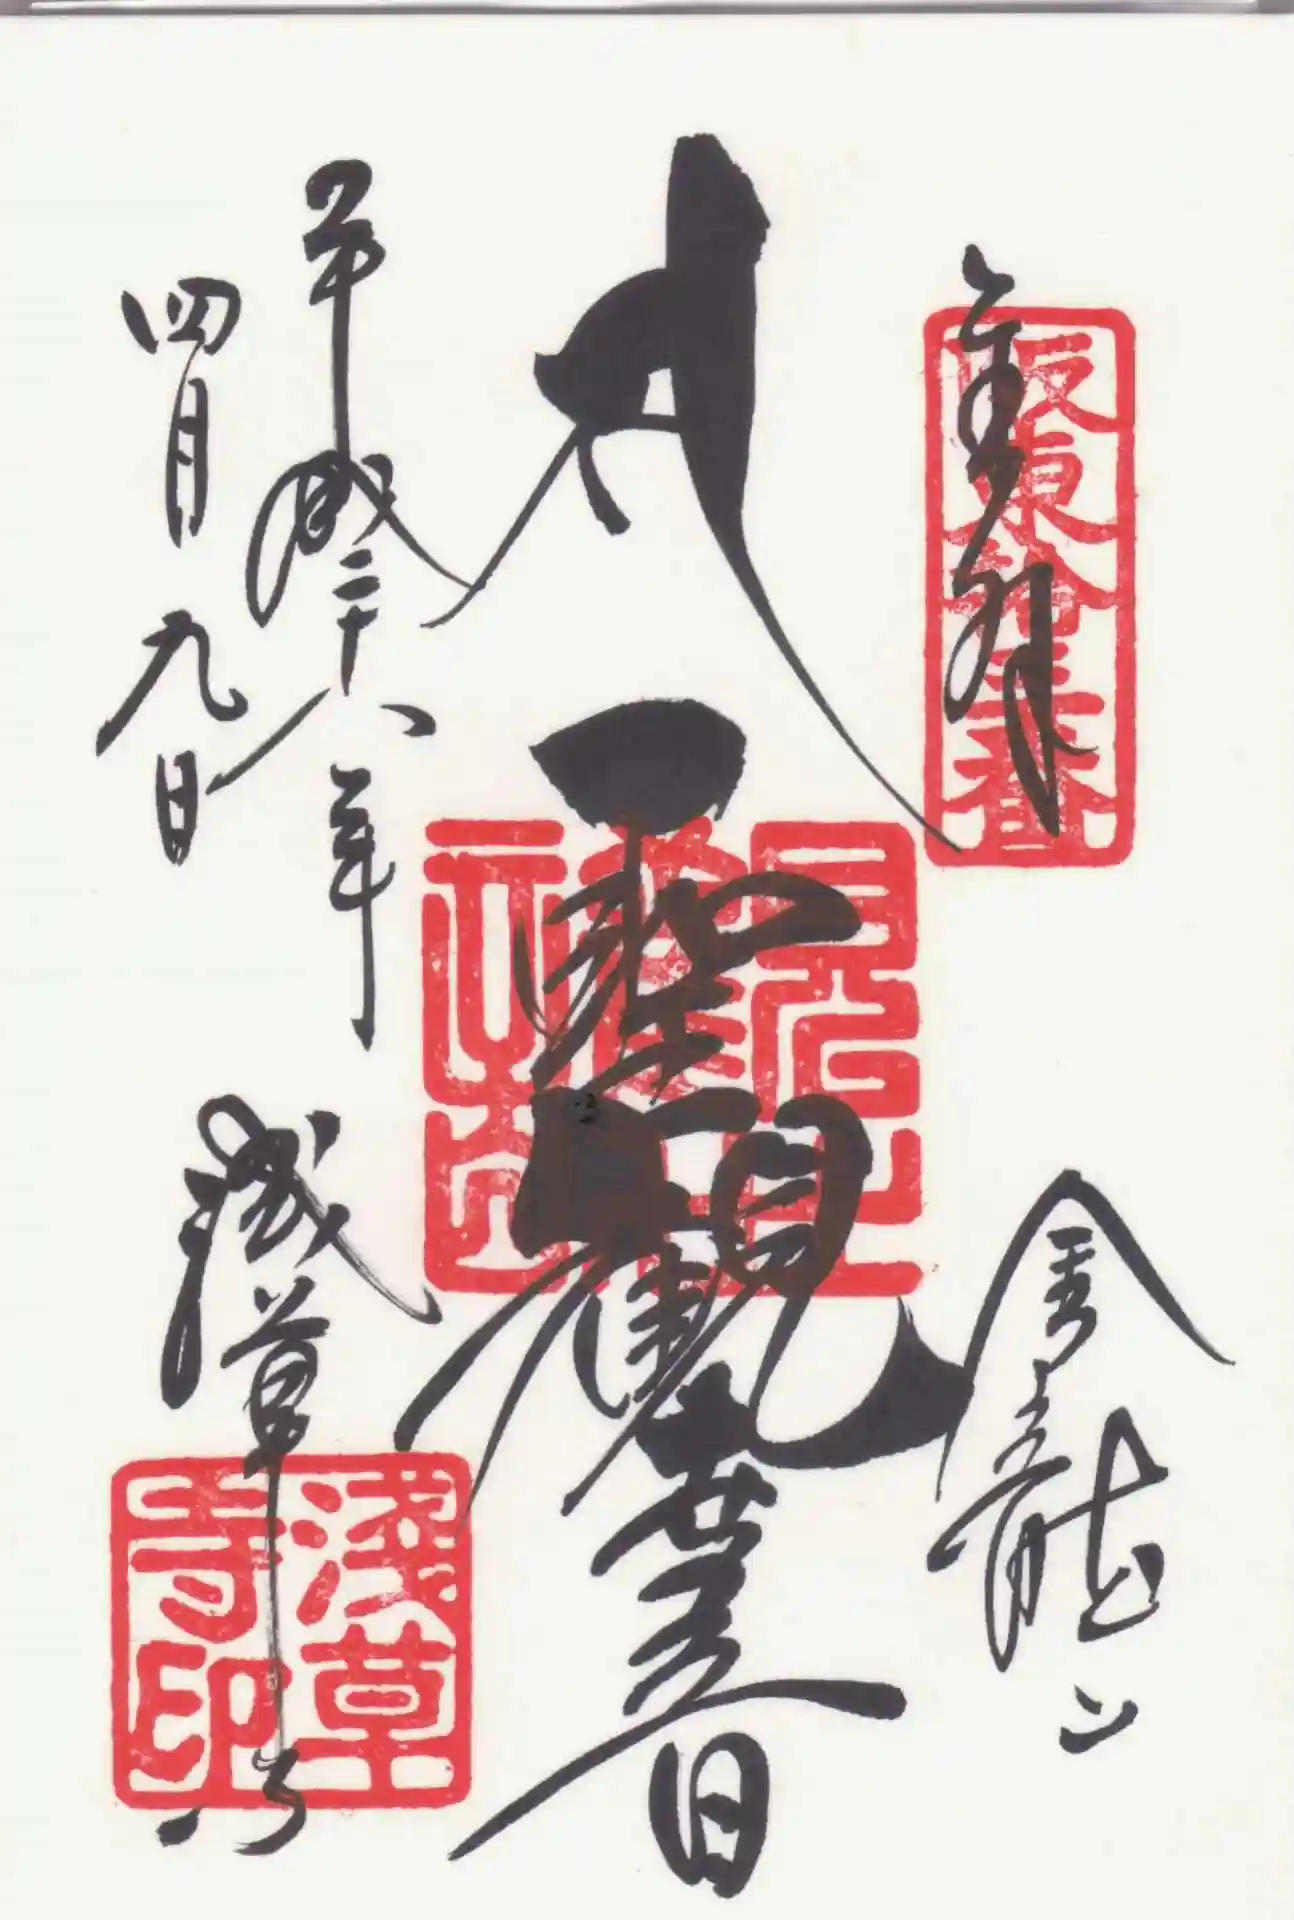 奉拝
坂東拾三番
金龍山
聖観世音
平成二十八年
四月九日
浅草寺
淺草寺印